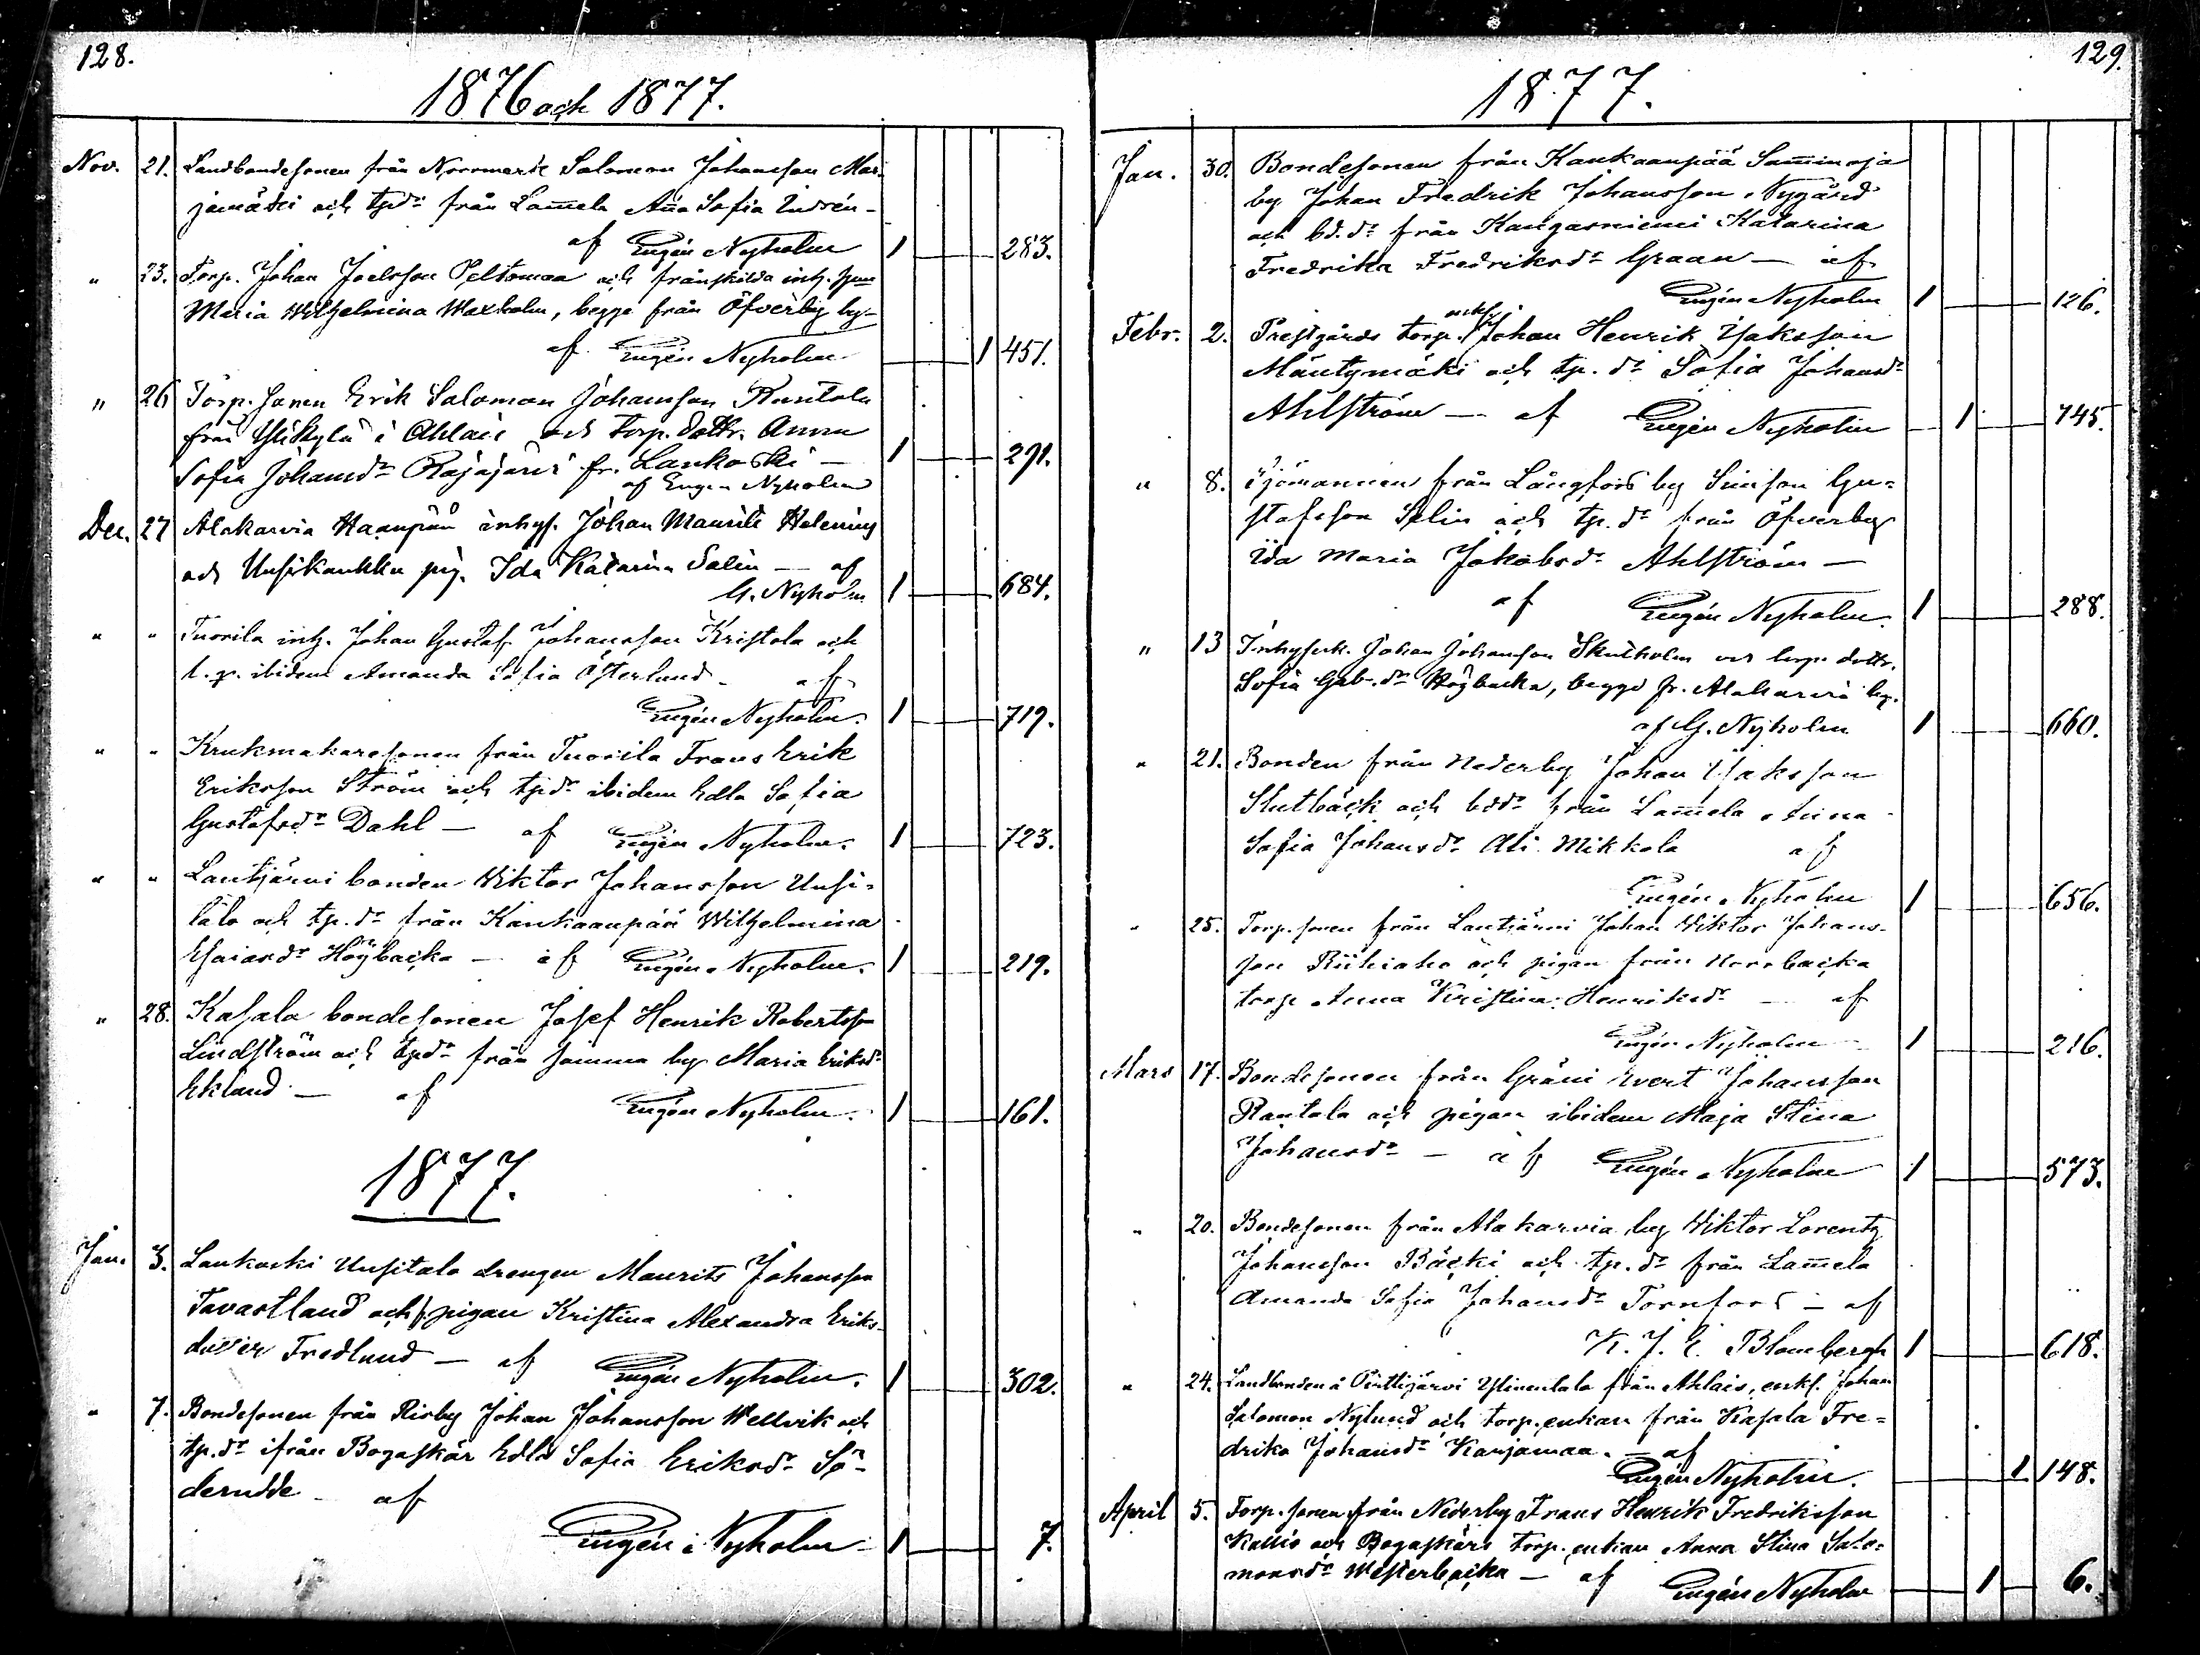 128.
1876 och 1877.
Nov. 21. Landbondesonen från Norrmark Salomon Johansson Mar-
jamäki och tpdr från Lam̄ela An̄a Sofia Indrén -
af Eugén Nyholm 1 283.
" 23. Torp. Johan Joelsson Peltomaa och frånskilda inh.
Maria Wilhelmina Waxholm, begge från Öfverby by -
af Eugén Nyholm 1 451.
" 26 Torp. sonen Erik Salomon Johansson Runtola
från Ylikylä i Ahlais och torp. dottr. Anna
Sofia Johansdr Rajajärvi fr. Lankoski —
af Eugen Nyholm 1 291.
Dec. 27 Alakarvia Haanpää inhys. Johan Maurits Helenius
och Uusikaukka pig. Ida Katarina Salin — af
G. Nyholm 1 684.
" " Tuorila inh. Johan Gustaf Johansson Kristola och
t. p. ibidem Amanda Sofia Österlund - af
Eugén Nyholm. 1 719.
" " Krukmakaresonen från Tuorila Frans Erik
Eriksson Ström och tpdr ibidem Edla Sofia
Gustafsdr Dahl — af Eugén Nyholm. 1 723.
" " Lautjärvi bonden Wiktor Johansson Uusi-
talo och tp.dr från Kankaanpää Wilhelmina
Esaiasdr Högbacka — af Eugén Nyholm. 1 219.
" 28. Kasala bondesonen Josef Henrik Robertsson
Lindström och tpdr från samma by Maria Eriksdr
Eklund — af Eugén Nyholm. 1 161.
1877.
Jan. 3. Lankoski Uusitalo drengen Maurits Johansson
Tavastland och pigan Kristina Alexandra Eriks-
dotter Fredlund — af Eugén Nyholm. 1 302.
" 7. Bondesonen från Risby Johan Johansson Wellvik och
tp.dr ifrån Bogaskär Edla Sofia Eriksdr Sö-
derudde - af
Eugén Nyholm 1 7.
129.
1877.
Jan. 30. Bondesonen från Kankaanpää Sam̄inoja
by Johan Fredrik Johansson Nygård
och bd.dr från Kangasniemi Katarina
Fredrika Fredriksdr Graan — af
Eugén Nyholm 1 126.
Febr. 2. Prestgårds torp. enkl. Johan Henrik Isaksson
Mäntymäki och tp. dr Sofia Johansdr
Ahlström — af Eugén Nyholm 1 745.
" 8. Sjömannen från Långfors by Simson Gu-
stafsson Selin och tp.dr från Öfverby
Ida Maria Jakobsdr Ahlström —
af Eugén Nyholm. 1 288.
" 13 Inhysesk. Johan Johansson Skutholm och torp. dottr.
Sofia Gab. dr Högbacka, begge fr. Alakarvia by.
af G. Nyholm 1 660.
" 21. Bonden från Nederby Johan Isaksson
Slutbäck och bddr från Lam̄ela Anna
Sofia Johansdr Ali Mikkola af
Eugén Nyholm 1 656.
" 25. Torp. sonen från Lautjärvi Johan Wiktor Johans-
son Riihiaho och pigan från Norrbacka
torp Anna Kristina Henriksdr — af
Eugén Nyholm 1 216.
Mars 17. Bondesonen från Gräni Evert Johansson
Rantala och pigan ibidem Maja Stina
Johansdr — af Eugén Nyholm 1 573.
" 20. Bondesonen från Alakarvia by Wiktor Lorentz
Johansson Bäcki och tp.dr från Lam̄ela
Amanda Sofia Johansdr Tornfors — af
K. J. E. Blombergh 1 618.
" 24. Landbonden å Pörttijärvi Ylinentalo från Ahlais, enkl. Johan
Salomon Nylund och torp. enkan från Kasala Fre-
drika Johansdr Karjamaa. — af
Eugén Nyholm. 1 148.
April 5. Torp. sonen från Nederby Frans Henrik Fredriksson
Kallio och Bogaskärs torp. enkan Anna Stina Salo-
monsdr Westerbacka — af Eugén Nyholm 1 6.